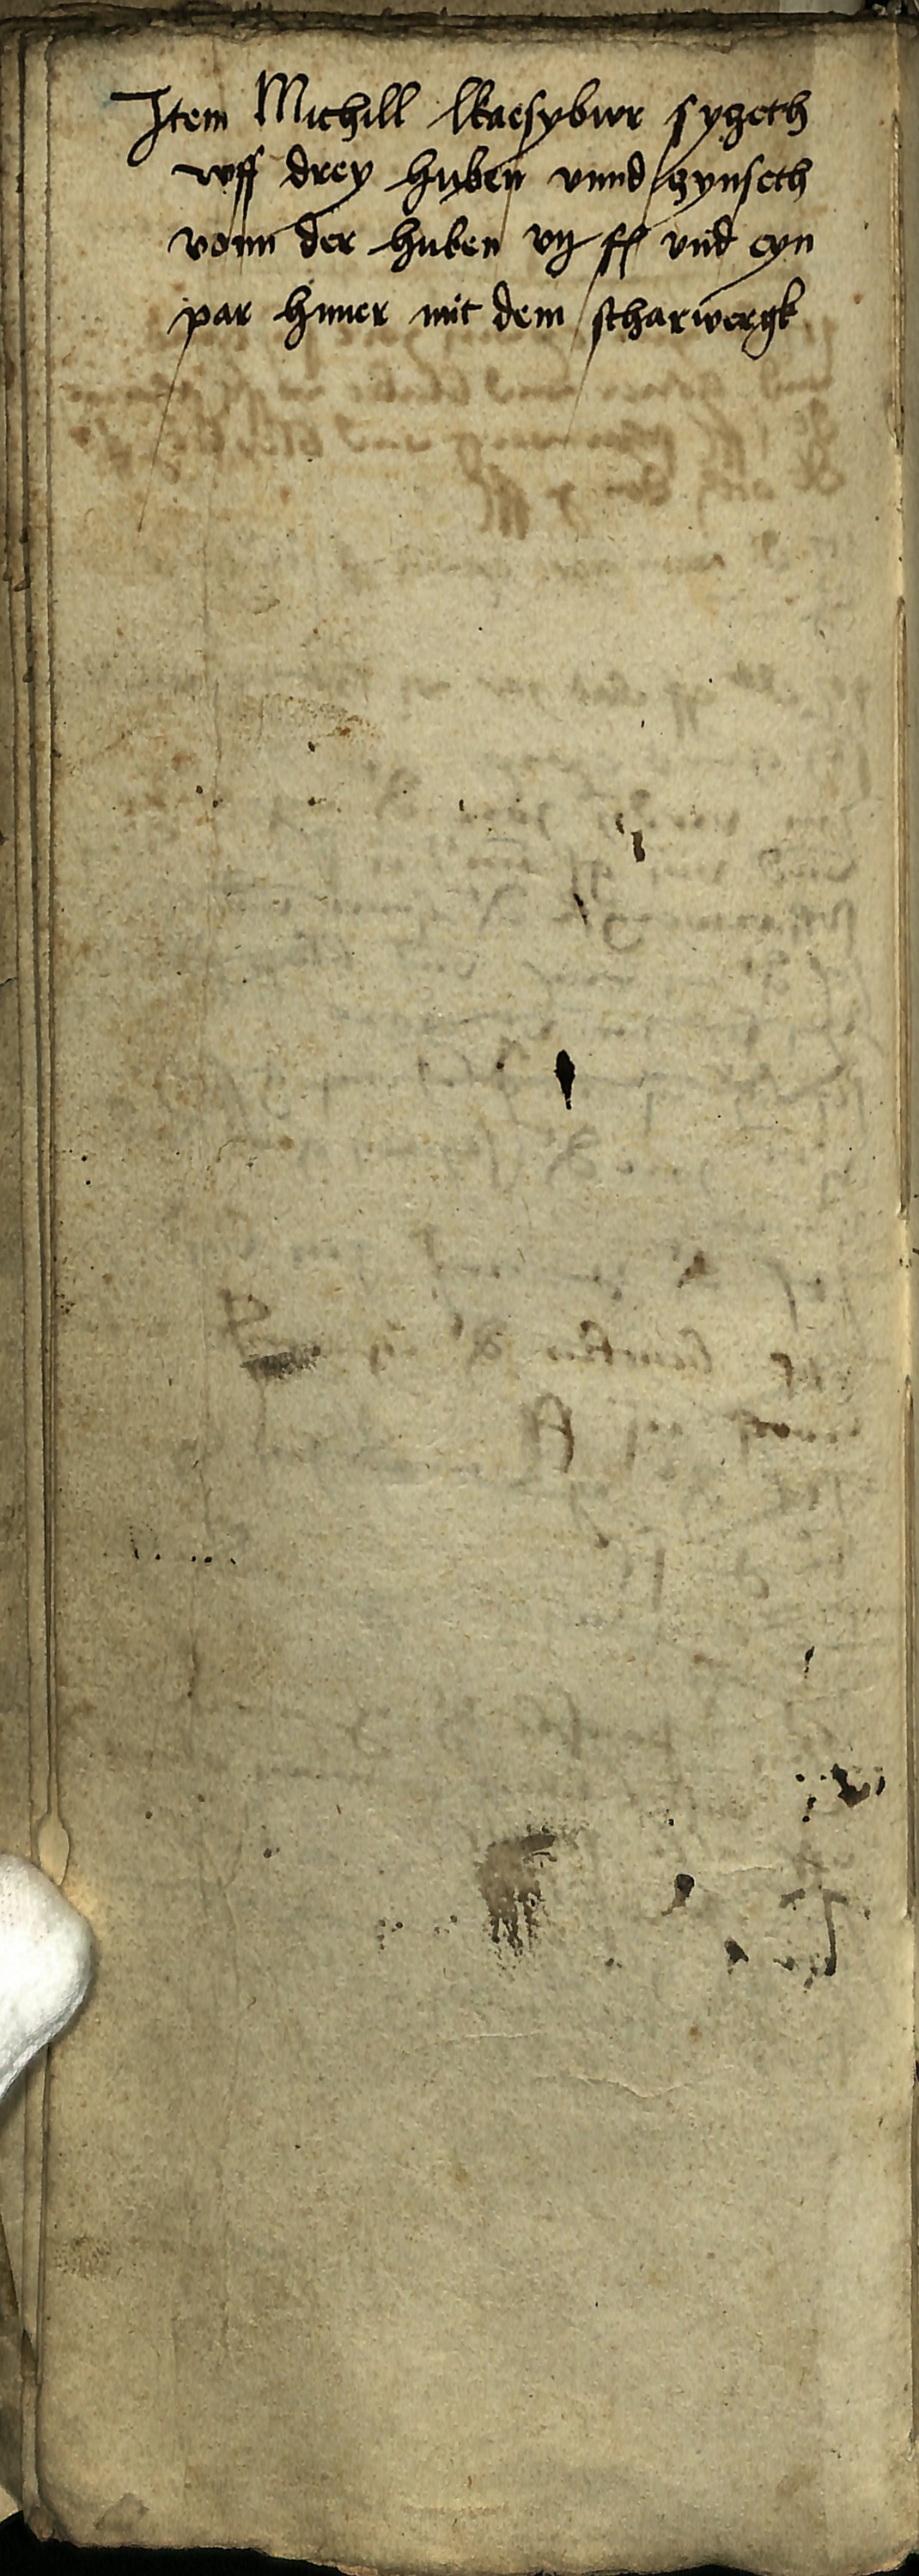 Item Michill syzeth
wff drey huben vnnd zynseth
vonn der huben vij ſſ vnd eyn
par huner mit dem scharwergk